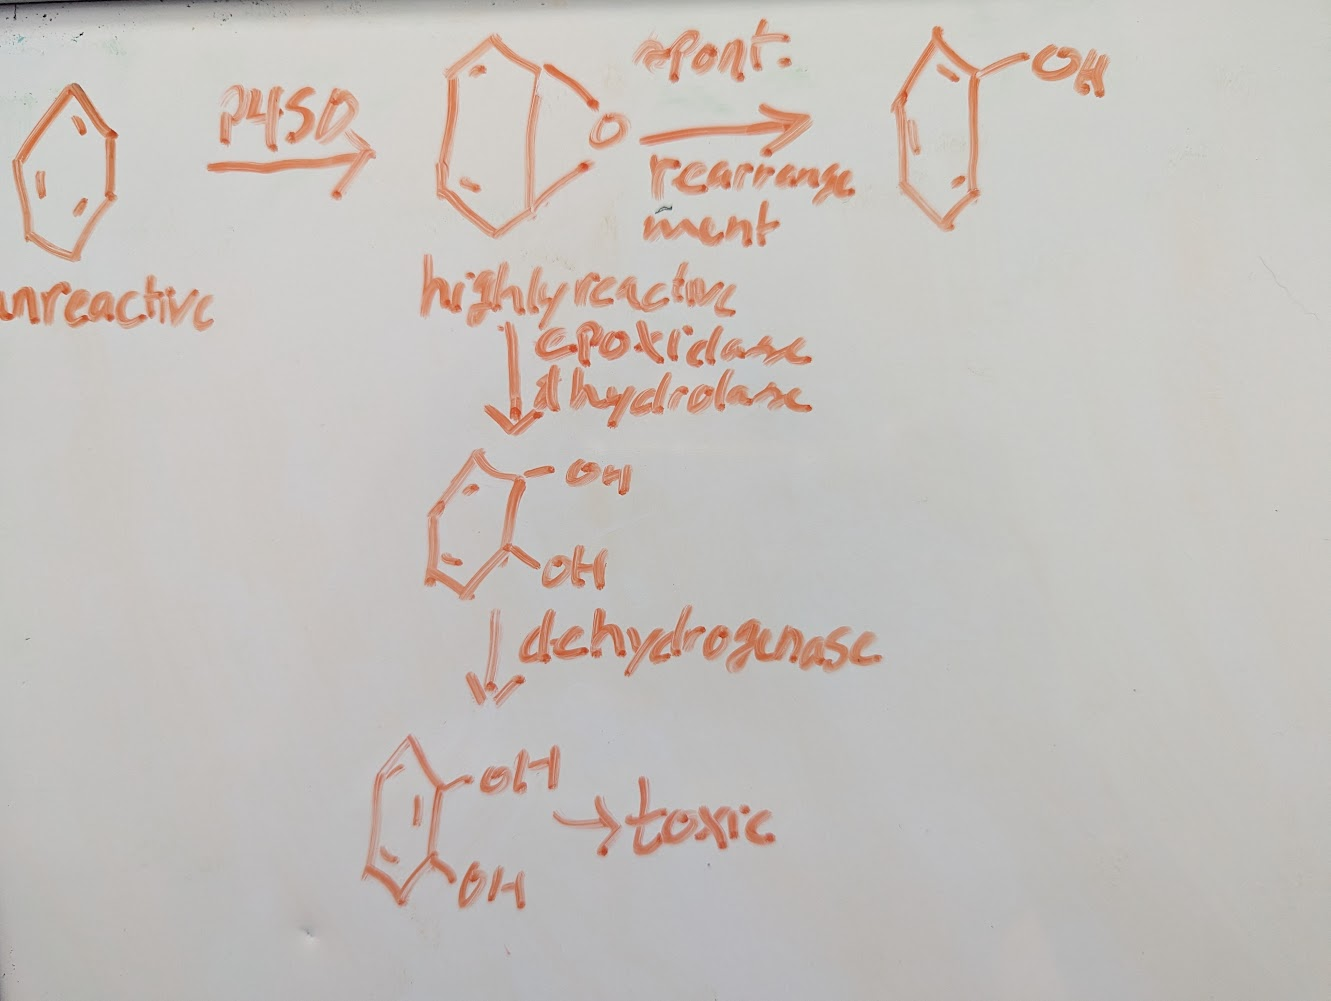 P450
O
spont.
rearrange
ment
OH
unreactive
highly reactive
epoxidase
hydrolase
OH
OH
dehydrogenase
OH
OH
→ toxic